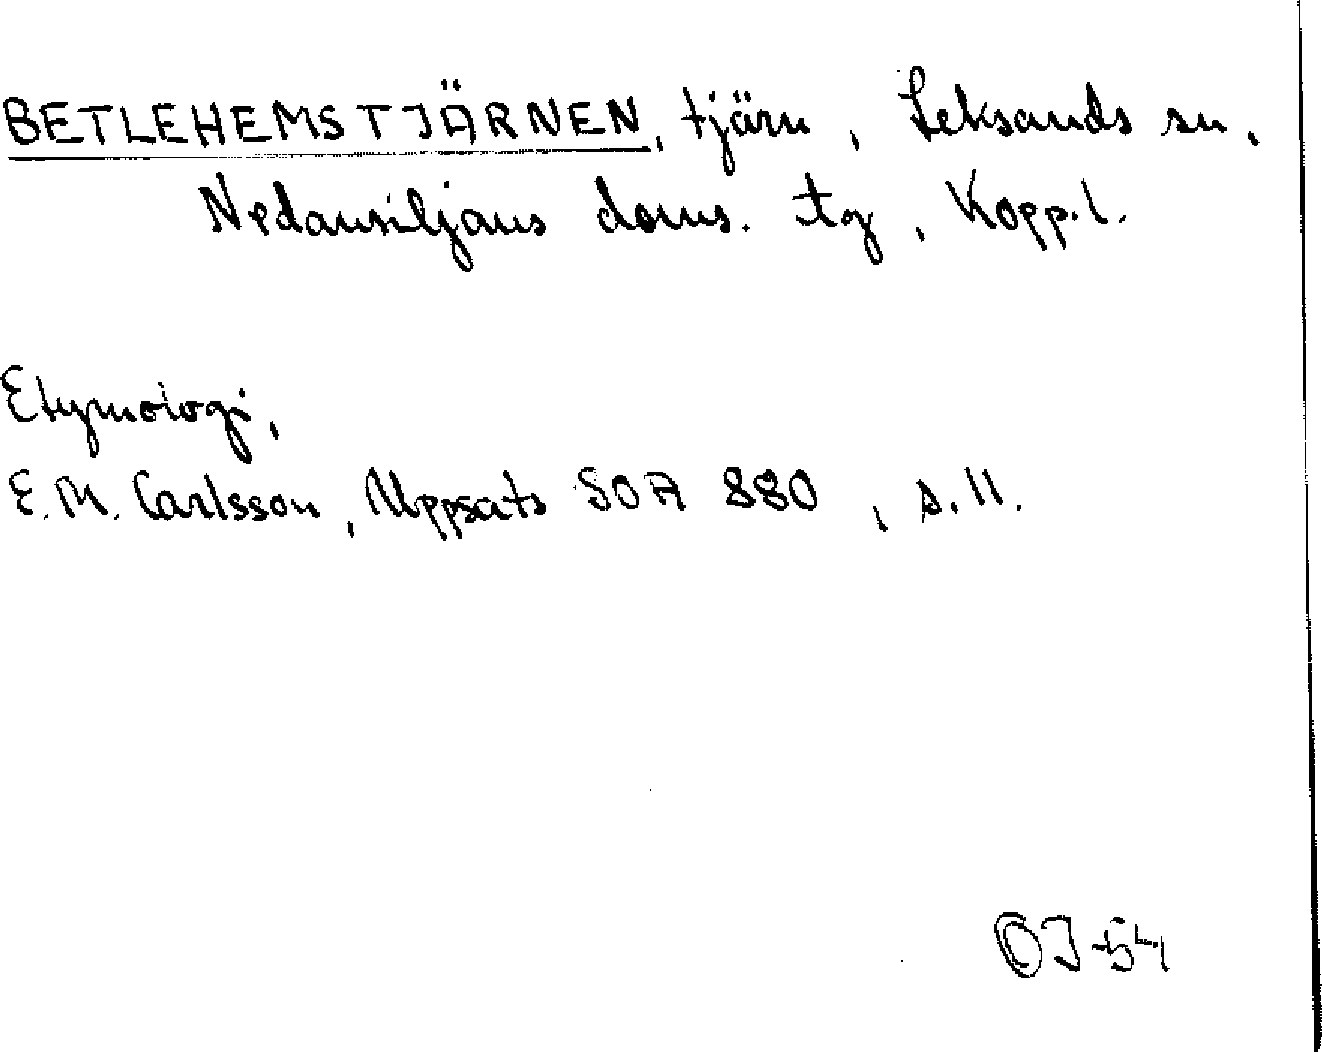 BETLEHEMSTJÄRNEN, tjärn, Leksands sn,
Nedansiljans doms. tg, Kopp.l.
Etymologi,
E.M. Carlsson, Uppsats SOA 880, s. 11.
OJ-54